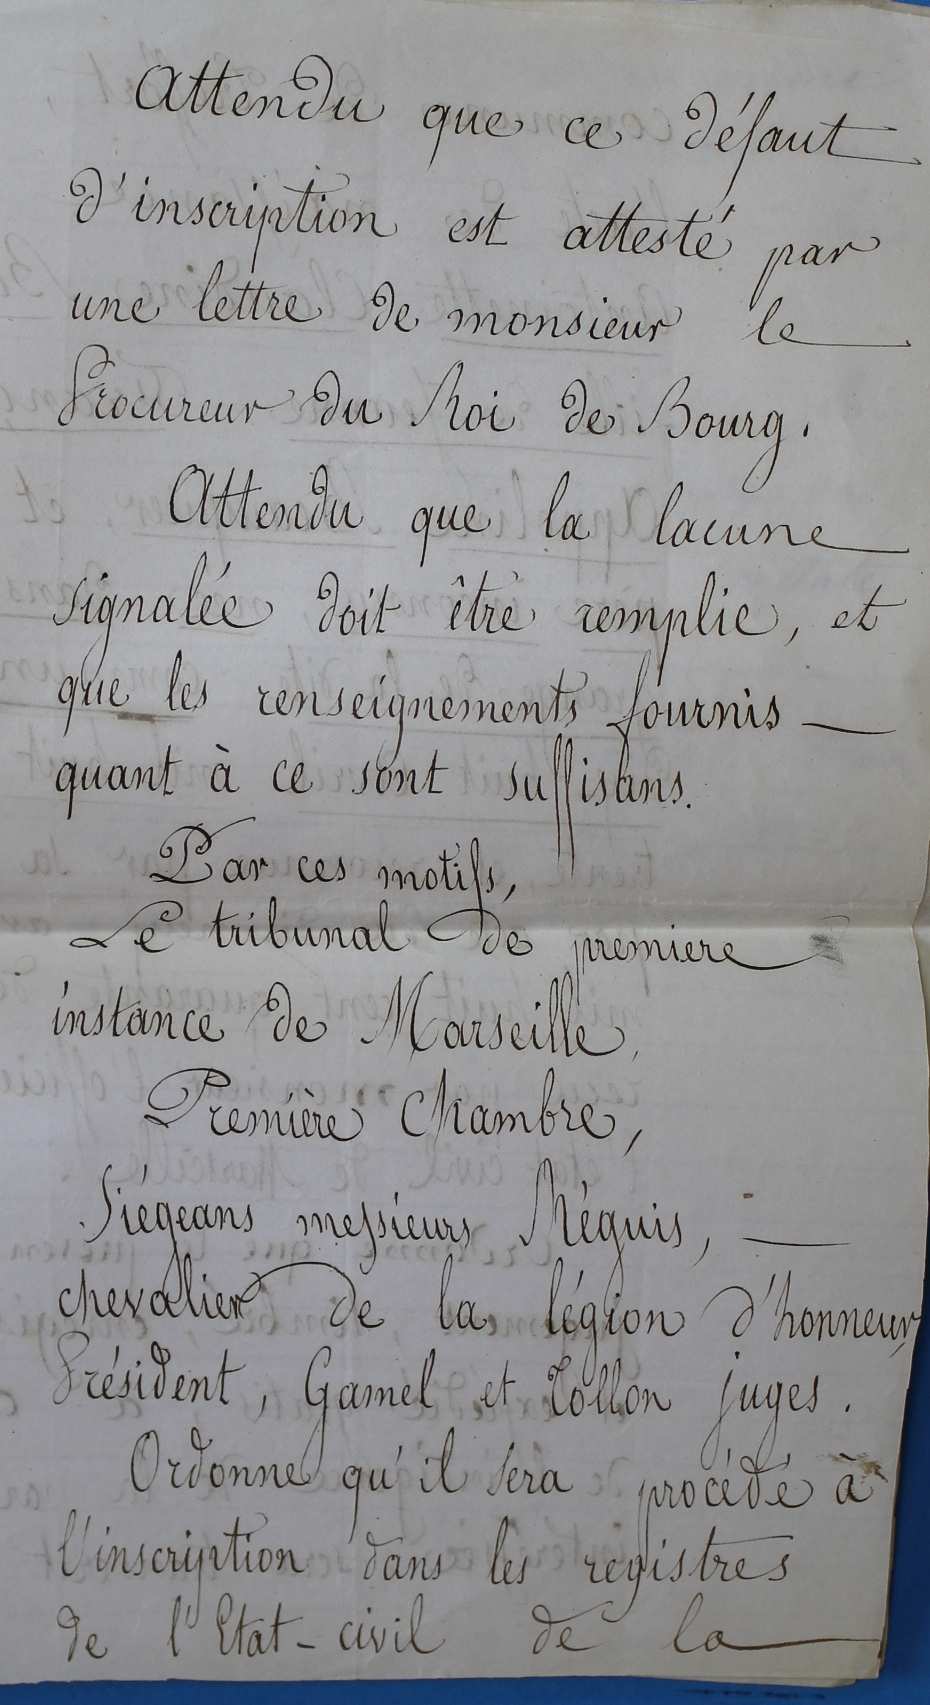 Attendu que ce défaut
d'inscription est attesté par
une lettre de monsieur le
Procureur du Roi de Bourg.
Attendu que la lacune
signalée doit être remplie, et
que les renseignements fournis —
quant à ce sont suffisans.
Par ces motifs,
Le tribunal de premiere
instance de Marseille,
Première Chambre,
Siégeans messieurs Réguis, —
chevalier de la légion d'honneur,
Président, Gamel et Tollon juges.
Ordonne qu'il sera procédé à
l'inscription dans les registres
de l'Etat-civil de la